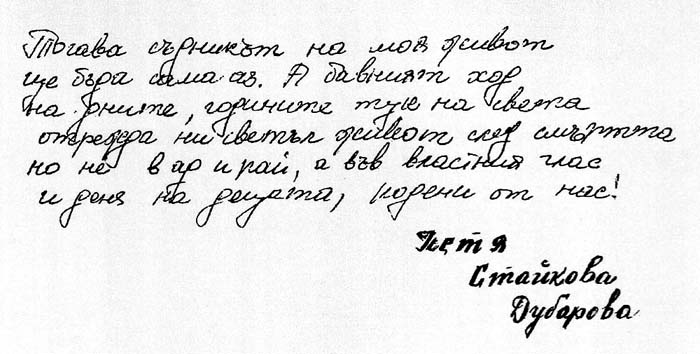 Тогава съдникът на моя живот
ще бъда сама аз. А бавният ход
на дните, годините тук на света
отрежда ни светъл живот след смъртта
но не в ад и рай, а във властния глас
и деня на децата, родени от нас!
Петя
Стайкова
Дубарова